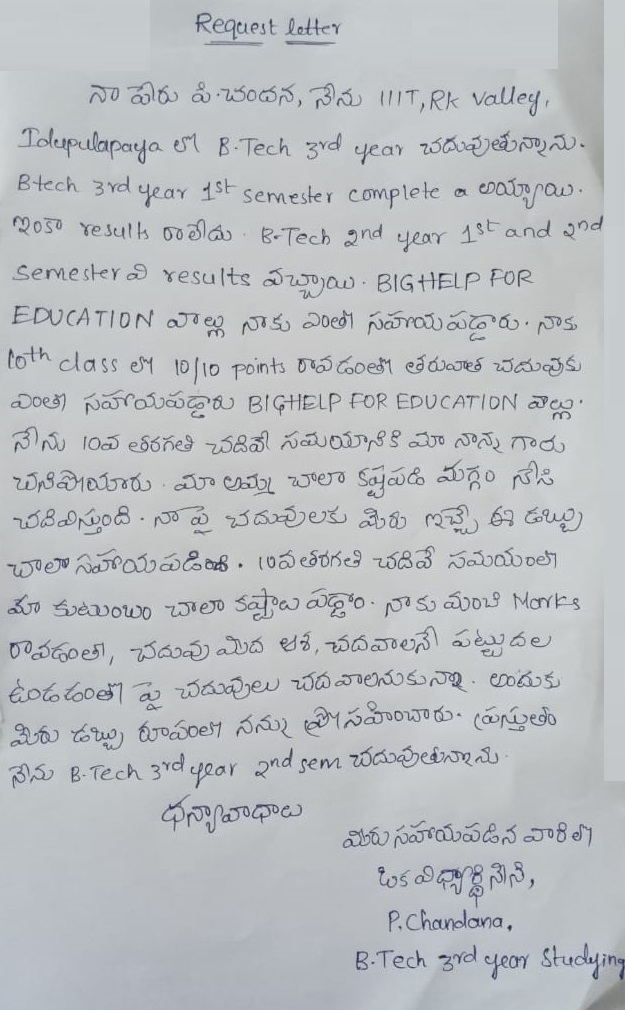 Request letter
నా పేరు పి.చందన, నేను IIIT, RK Valley,
Idupulapaya లో B.Tech 3rd year చదువుతున్నాను.
Btech 3rd year 1st semester complete అయ్యాయి.
ఇంకా results రాలేదు. B.Tech 2nd year 1st and 2nd
semester వి results వచ్చాయి. BIGHELP FOR
EDUCATION వాల్లు నాకు ఎంతో సహాయపడ్డారు. నాకు
10th class లో 10/10 points రావడంతో తరువాత చదువుకు
ఎంతో సహాయపడ్డారు BIGHELP FOR EDUCATION వాల్లు.
నేను 10వ తరగతి చదివే సమయానికి మా నాన్న గారు
చనిపోయారు. మా అమ్మ చాలా కష్టపడి మగ్గం నేసి
చదివిస్తుంది. నా పై చదువులకు మీరు ఇచ్చే ఈ డబ్బు
చాలా సహాయపడింది. 10వ తరగతి చదివే సమయంలో
మా కుటుంబం చాలా కష్టాలు పడ్డాం. నాకు మంచి Marks
రావడంతో, చదువు మీద ఆశ, చదవాలనే పట్టుదల
ఉండడంతో పై చదువులు చదవాలనుకున్నా. అందుకు
మీరు డబ్బు రూపంలో నన్ను ప్రోసహించారు. ప్రస్తుతం
నేను B.Tech 3rd year 2nd sem చదువుతున్నాను.
ధన్యావాధాలు
మీరు సహాయపడిన వారిలో
ఒక విధ్యార్థి నేనే,
P.Chandana,
B.Tech 3rd year Studying